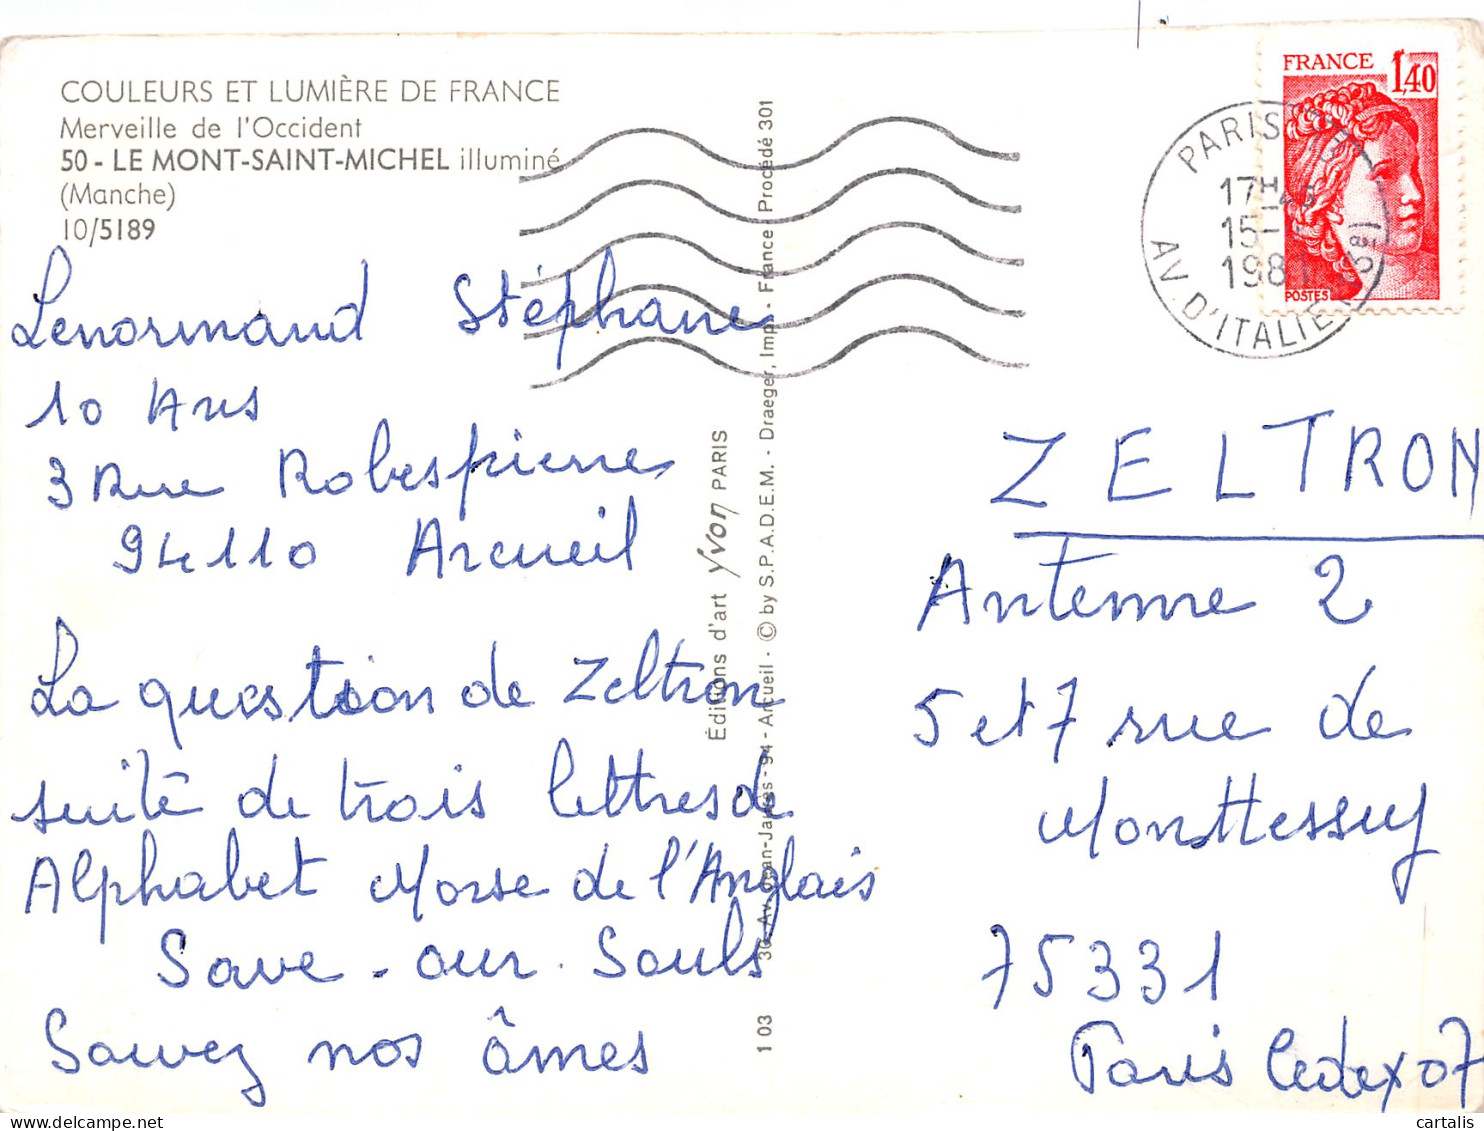 COULEURS ET LUMIÈRE DE FRANCE
Merveille de l'Occident
50 - LE MONT-SAINT-MICHEL illuminé
(Manche)
10/5189
Lenormand Stéphane
10 Ans
3 Rue Robespierre
94110 Arcueil
La question de Zeltron
suite de trois lettres de
Alphabet Morse de l'Anglais
Save - our - Souls
Sauvez nos âmes
Éditions d'art Yvon PARIS
1 03 30, Av. Jean-Jaurès - 94 - Arcueil - © by S.P.A.D.E.M. - Draeger, Imp. - France - Procédé 301
FRANCE 1,40
POSTES
PARIS
17H45
15-
198
AV. D'ITALIE (13e)
ZELTRON
Antenne 2
5 et 7 rue de
Monttessuy
75331
Paris Cedex 07
cartalis.com